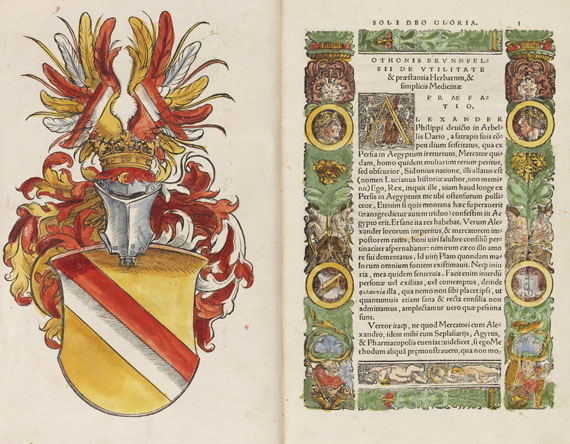 SOLI DEO GLORIA. 1
OTHONIS BRVNNFEL-
SII DE VTILITATE
& præstantia Herbarum, &
simplicis Medicinæ
PRÆFA-
TIO.
ALEXANDER
Philippi deuicto in Arbel
lis Dario, a satrapis suis cõpen
dium suscitatus, qua ex
Persia in Aegyptum iretur tuto, Mercator qui-
dam, homo quidem multarum rerum peritus,
sed obscurior, Sidonius natione, illi allatus est
(nomen Lucianus historiæ author, non memi-
ni) Ego, Rex, inquit ille, uiam haud longe ex
Persis in Aegyptum me tibi ostensurum pollì-
ceor, Etenim si quis montana hæc superauerit
(transgredietur autem triduo) confestim in Ae-
gypto erit. Et sane ita res habebat. Verum Alex-
ander locorum imperitus, & mercatorem im-
postorem ratus, boni uiri salubre consiliũ per-
tinaciter aspernabatur: nimirum exco illo amo
re sui dementatus. Id uitij Plato quondam ma-
lorum omnium fontem existimauit. Neq; iniu-
ria, mea quidem sententia. Facit enim interdũ
personæ uel exilitas, uel contemptus, deinde
illa, qua nemo non sibi placet ipsi, ut
quantumuis etiam sana & recta consilia non
admittamus, amplectamur uero quæ pessima
sunt.
Vereor itaq;, ne quod Mercatori cum Ale-
xandro, idem mihi cum Seplasiarijs, Agyrtis,
& Pharmacopolis eueniat: uidelicet, si ego Me-
thodum aliquã premonstrauero, qua non mo-